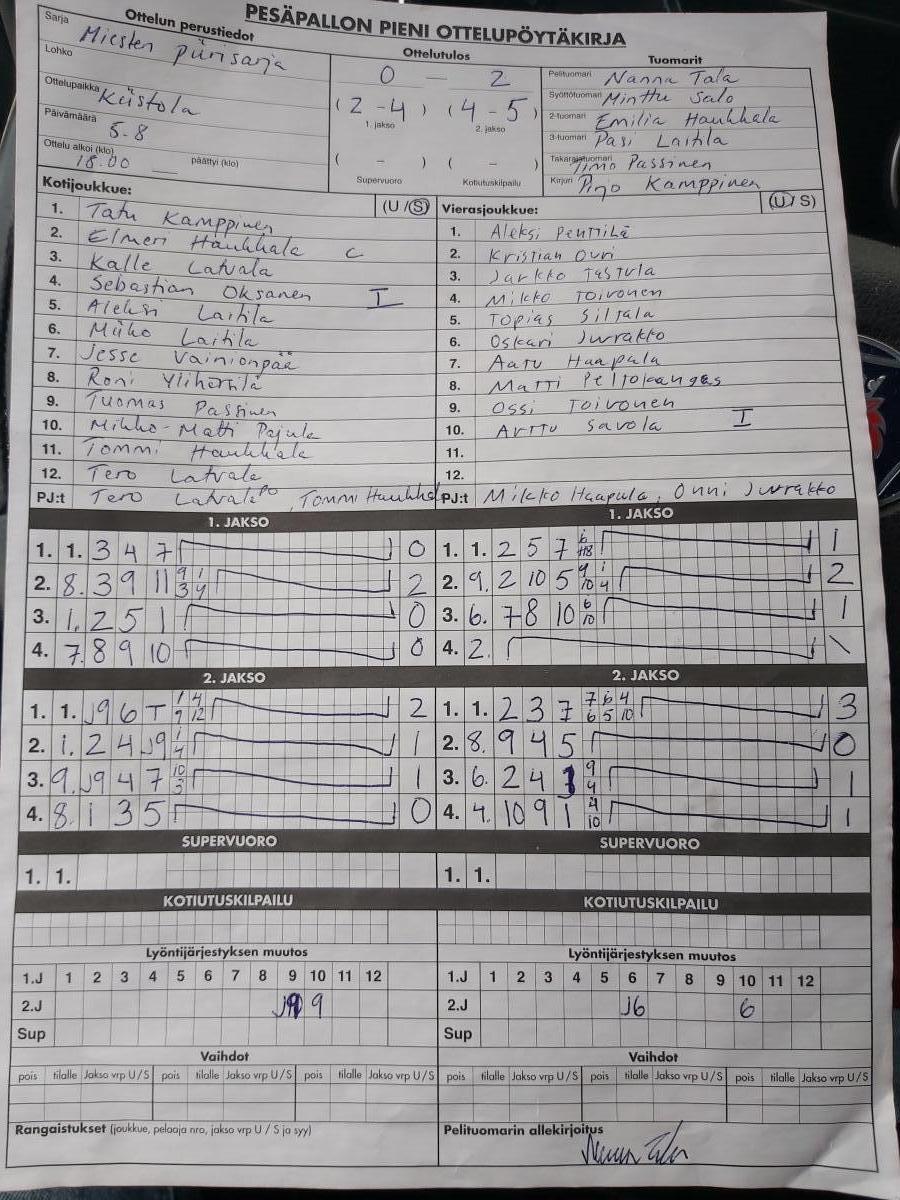 PESÄPALLON PIENI OTTELUPÖYTÄKIRJA
Ottelun perustiedot
Sarja Miesten piirisarja
Lohko
Ottelupaikka Kiistola
Päivämäärä 5.8
Ottelu alkoi (klo) 18.00 päättyi (klo)
Ottelutulos
0 — 2
(2-4) (4-5)
1. jakso 2. jakso
( - ) ( - )
Supervuoro Kotiutuskilpailu
Tuomarit
Pelituomari Nanna Tala
Syöttötuomari Minttu Salo
2-tuomari Emilia Haukkala
3-tuomari Pasi Laitila
Takarajatuomari Timo Passinen
Kirjuri Pirjo Kamppinen
Kotijoukkue: (U/S)
1. Tatu Kamppinen
2. Elmeri Haukkala C
3. Kalle Latvala
4. Sebastian Oksanen I
5. Aleksi Laitila
6. Miiko Laitila
7. Jesse Vainionpää
8. Roni Ylihärsilä
9. Tuomas Passinen
10. Mikko-Matti Pajula
11. Tommi Haukkala
12. Tero Latvala
PJ:t Tero Latvala PO, Tommi Haukkala
Vierasjoukkue: (U/S)
1. Aleksi Penttilä
2. Kristian Ouri
3. Jarkko Tastula
4. Mikko Toivonen
5. Topias Siltala
6. Oskari Jurrakko
7. Aatu Haapala
8. Matti Peltokangas
9. Ossi Toivonen
10. Arttu Savola I
11.
12.
PJ:t Mikko Haapula, Onni Jurrakko
1. JAKSO
1. 1. 3 4 7 0
2. 8. 3 9 11 9/3 1/4 2
3. 1. 2 5 1 0
4. 7. 8 9 10 0
1. JAKSO
1. 1. 2 5 7 1
2. 9. 2 10 5 9/10 1/4 2
3. 6. 7 8 10 6/10 1
4. 2. \
2. JAKSO
1. 1. J9 6 T 1/9 4/12 2
2. 1. 2 4 J9 1/4 1
3. 9. J9 4 7 10/3 1
4. 8. 1 3 5 0
2. JAKSO
1. 1. 2 3 7 7/6 6/5 4/10 3
2. 8. 9 4 5 0
3. 6. 2 4 9/4 1
4. 4. 10 9 1 4/10 1
SUPERVUORO
1. 1.
SUPERVUORO
1. 1.
KOTIUTUSKILPAILU
KOTIUTUSKILPAILU
Lyöntijärjestyksen muutos
1.J 1 2 3 4 5 6 7 8 9 10 11 12
2.J J9 9
Sup
Lyöntijärjestyksen muutos
1.J 1 2 3 4 5 6 7 8 9 10 11 12
2.J J6 6
Sup
Vaihdot
pois tilalle Jakso vrp U/S pois tilalle Jakso vrp U/S pois tilalle Jakso vrp U/S
Vaihdot
pois tilalle Jakso vrp U/S pois tilalle Jakso vrp U/S pois tilalle Jakso vrp U/S
Rangaistukset (joukkue, pelaaja nro, jakso vrp U/S ja syy)
Pelituomarin allekirjoitus
Nanna Tala